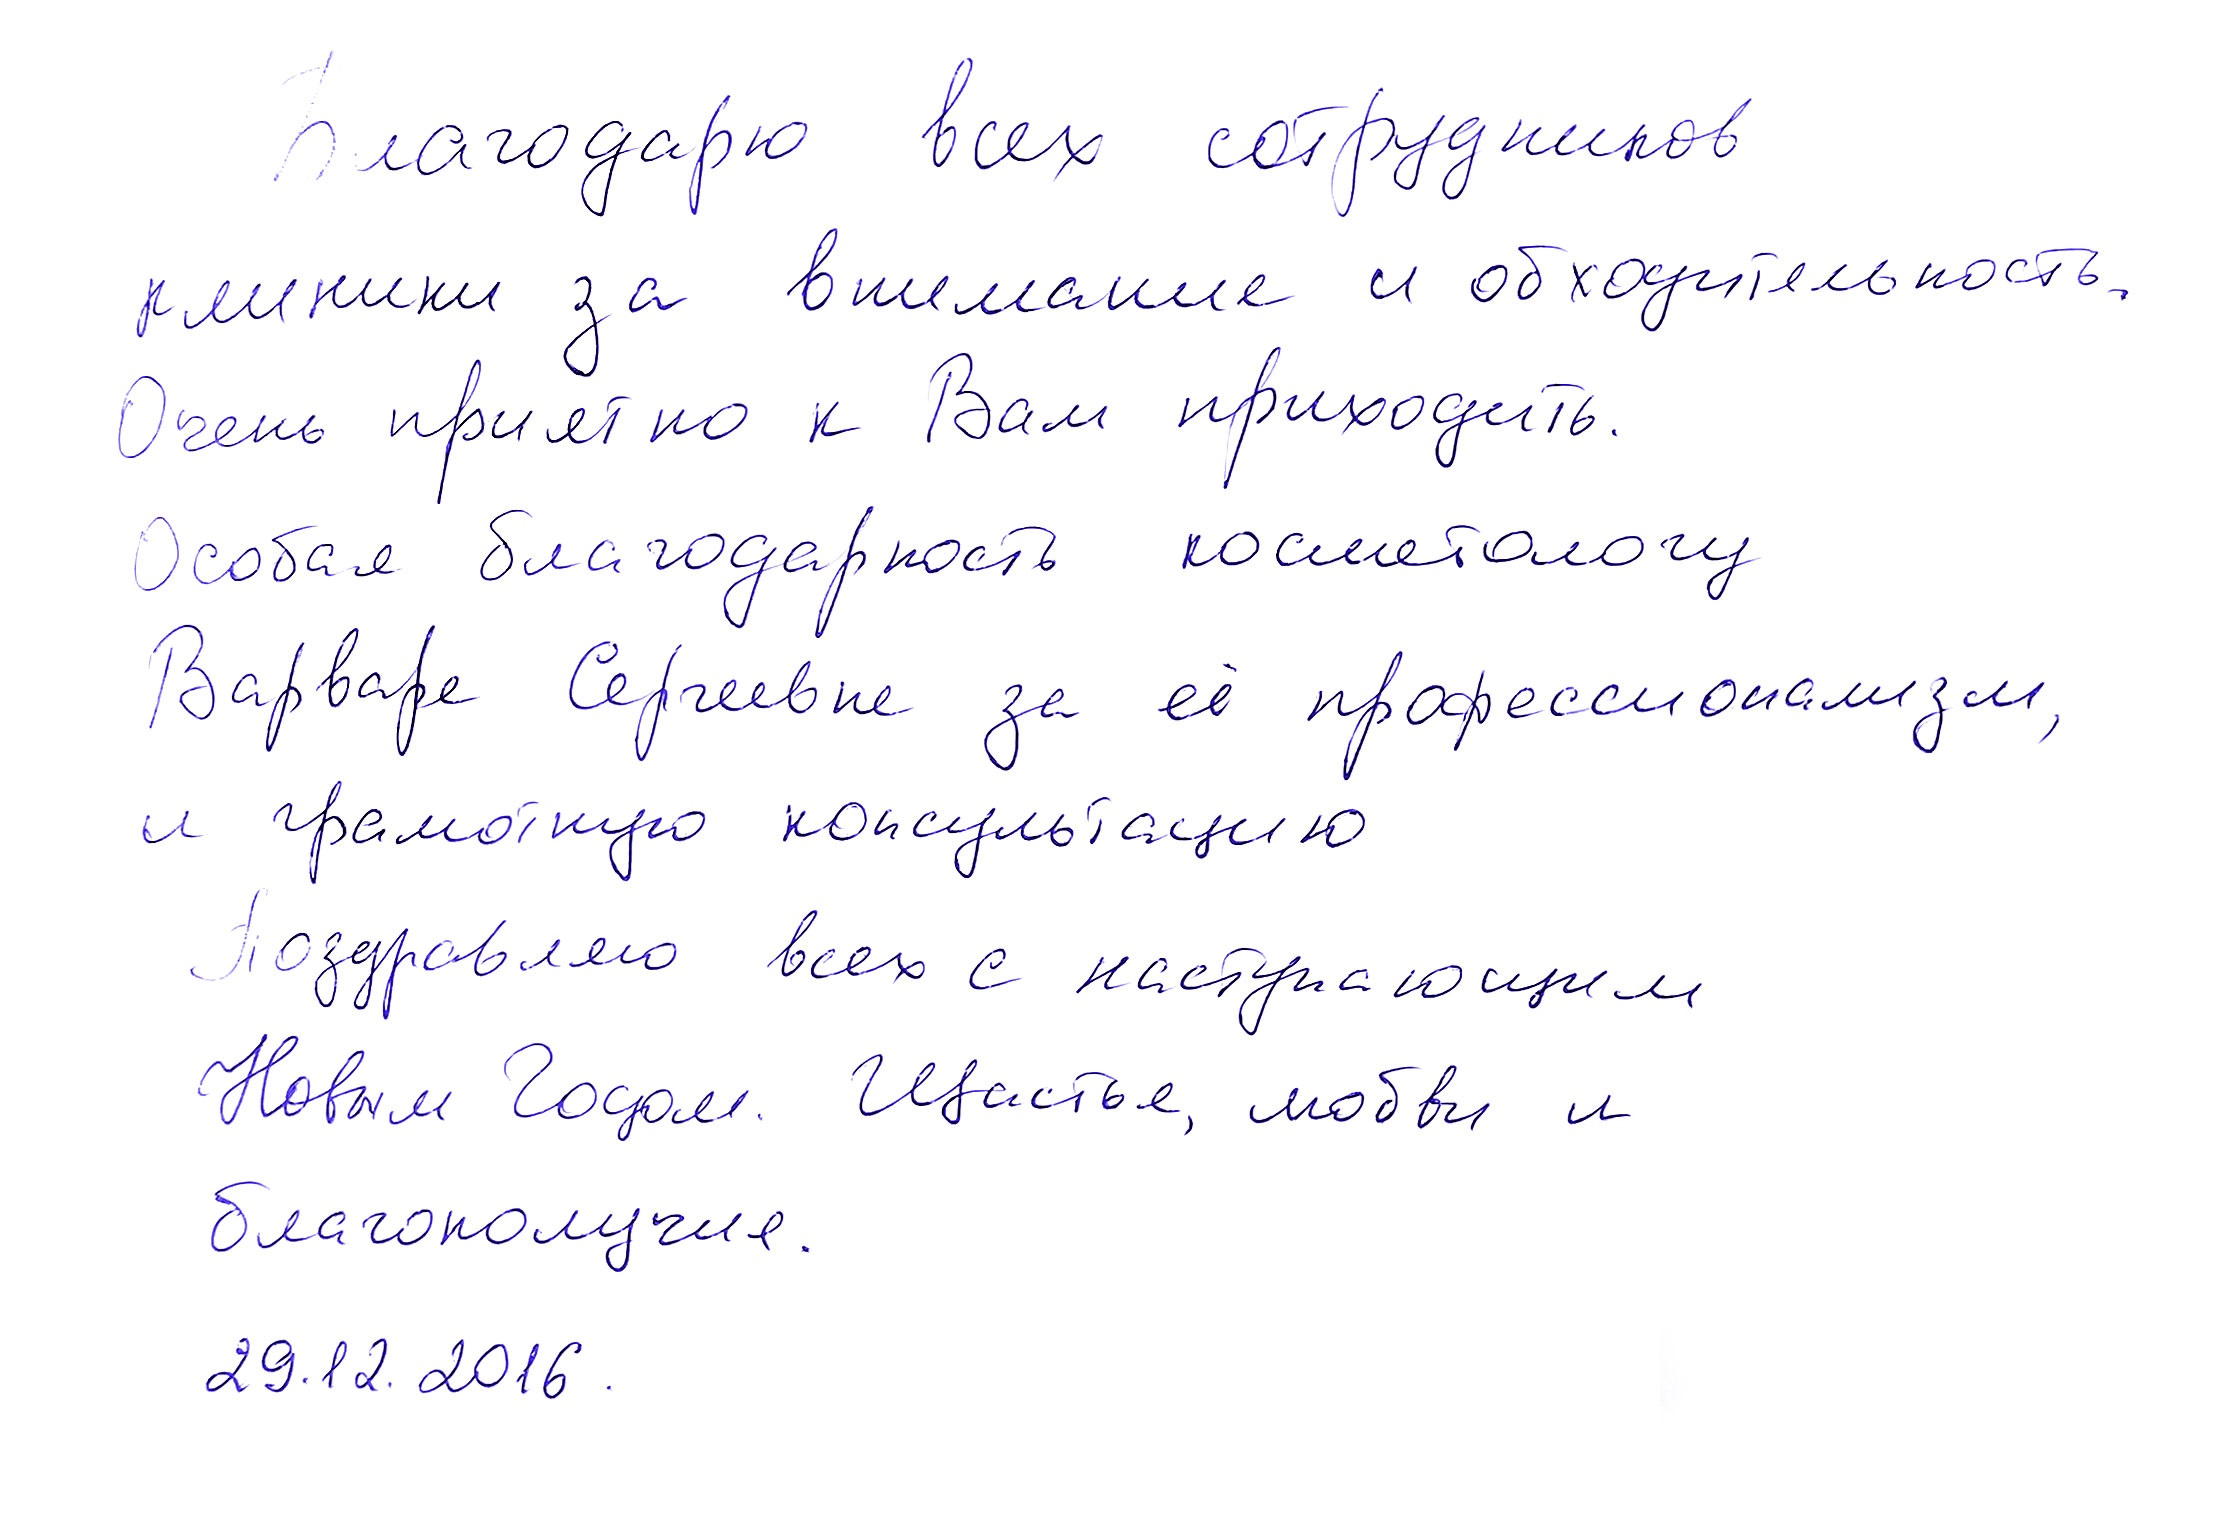 Благодарю всех сотрудников
клиники за внимание и обходительность.
Очень приятно к Вам приходить.
Особая благодарность косметологу
Варваре Сергеевне за её профессионализм,
и грамотную консультацию
Поздравляю всех с наступающим
Новым Годом. Щастье, любви и
благополучие.
29.12.2016.